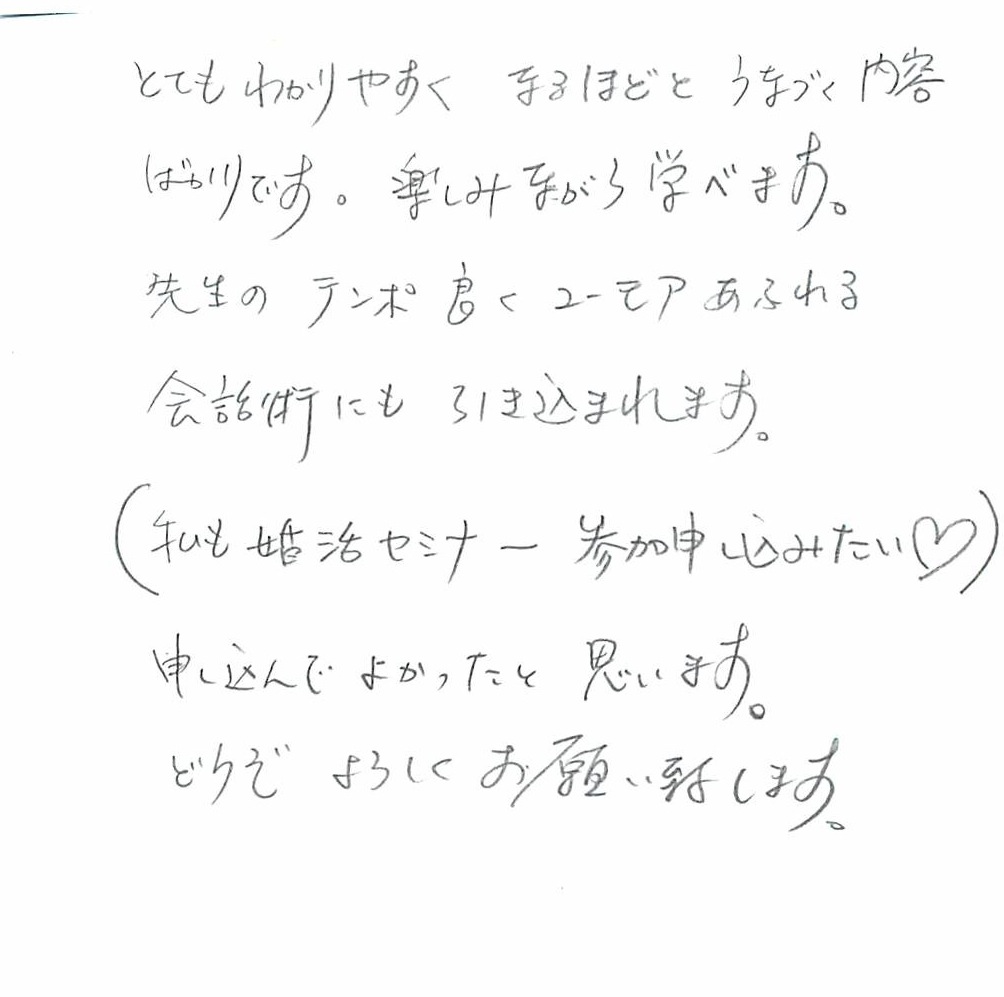 とてもわかりやすく なるほどと うなづく内容
ばかりです。楽しみながら学べます。
先生の テンポ良く ユーモアあふれる
会話術にも 引き込まれます。
(私も婚活セミナー 参加申し込みたい♡)
申し込んで よかったと 思います。
どうぞ よろしく お願い致します。